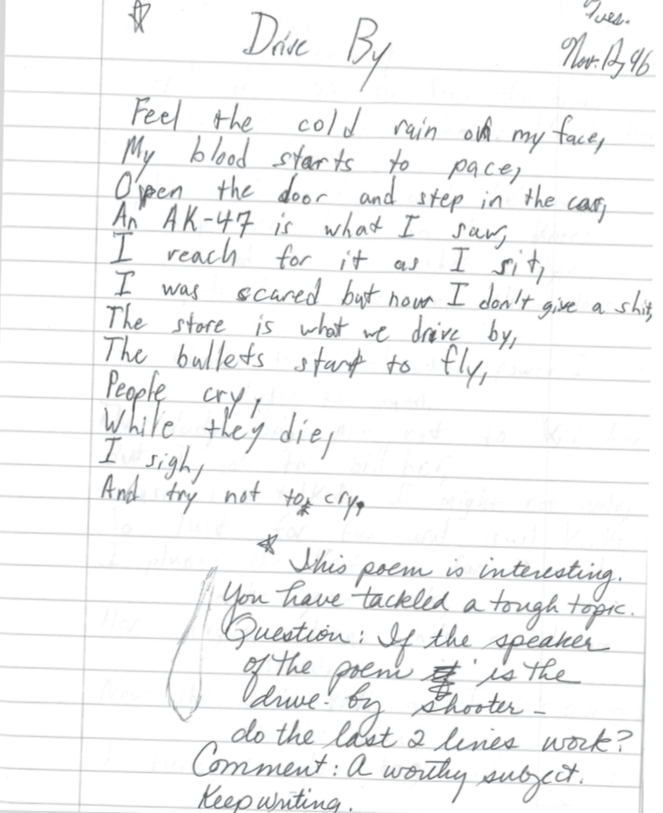 Tues.
Drive By
Nov. 12, 96
Feel the cold rain on my face,
My blood starts to pace,
Open the door and step in the car,
An AK-47 is what I saw,
I reach for it as I sit,
I was scared but now I don't give a shit,
The store is what we drive by,
The bullets start to fly,
People cry,
While they die,
I sigh,
And try not to cry.
* This poem is interesting.
You have tackled a tough topic.
Question: If the speaker
of the poem is the
drive-by shooter -
do the last 2 lines work?
Comment: A worthy subject.
Keep writing.